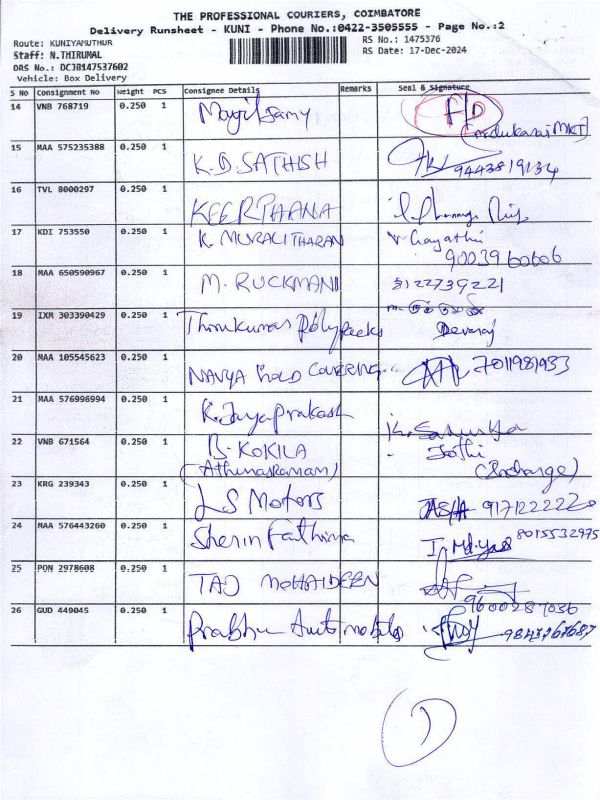 THE PROFESSIONAL COURIERS, COIMBATORE
Delivery Runsheet - KUNI - Phone No.:0422-3505555 - Page No.:2
Route: KUNIYAMUTHUR
RS No.: 1475376
Staff: N.THIRUMAL
RS Date: 17-Dec-2024
DRS No.: DCJB147537602
Vehicle: Box Delivery
S No Consignment No Weight PCS Consignee Details Remarks Seal & Signature
14 VNB 768719 0.250 1
15 MAA 575235388 0.250 1 K.D.SATHISH 9443819134
16 TVL 8000297 0.250 1 KEERTHANA
17 KDI 753550 0.250 1 K. MURALITHARAN Gayathri
9003960606
18 MAA 650590967 0.250 1 M. RUCKMANI 8122739221
19 IXM 303390429 0.250 1 Thirukumar Poly packs Devaraj
20 MAA 105545623 0.250 1 NAVYA GOLD COVERING 7011981933
21 MAA 576996994 0.250 1 K. Jayaprakash
22 VNB 671564 0.250 1 B. KOKILA Jothi
23 KRG 239343 0.250 1 LS Motors 9171222220
24 MAA 576443260 0.250 1 Sherin Fathima 8015532975
25 PON 2978608 0.250 1 TAJ MOHAIDEEN
9600287036
26 GUD 449045 0.250 1 Prabhu Automobiles 9843267687